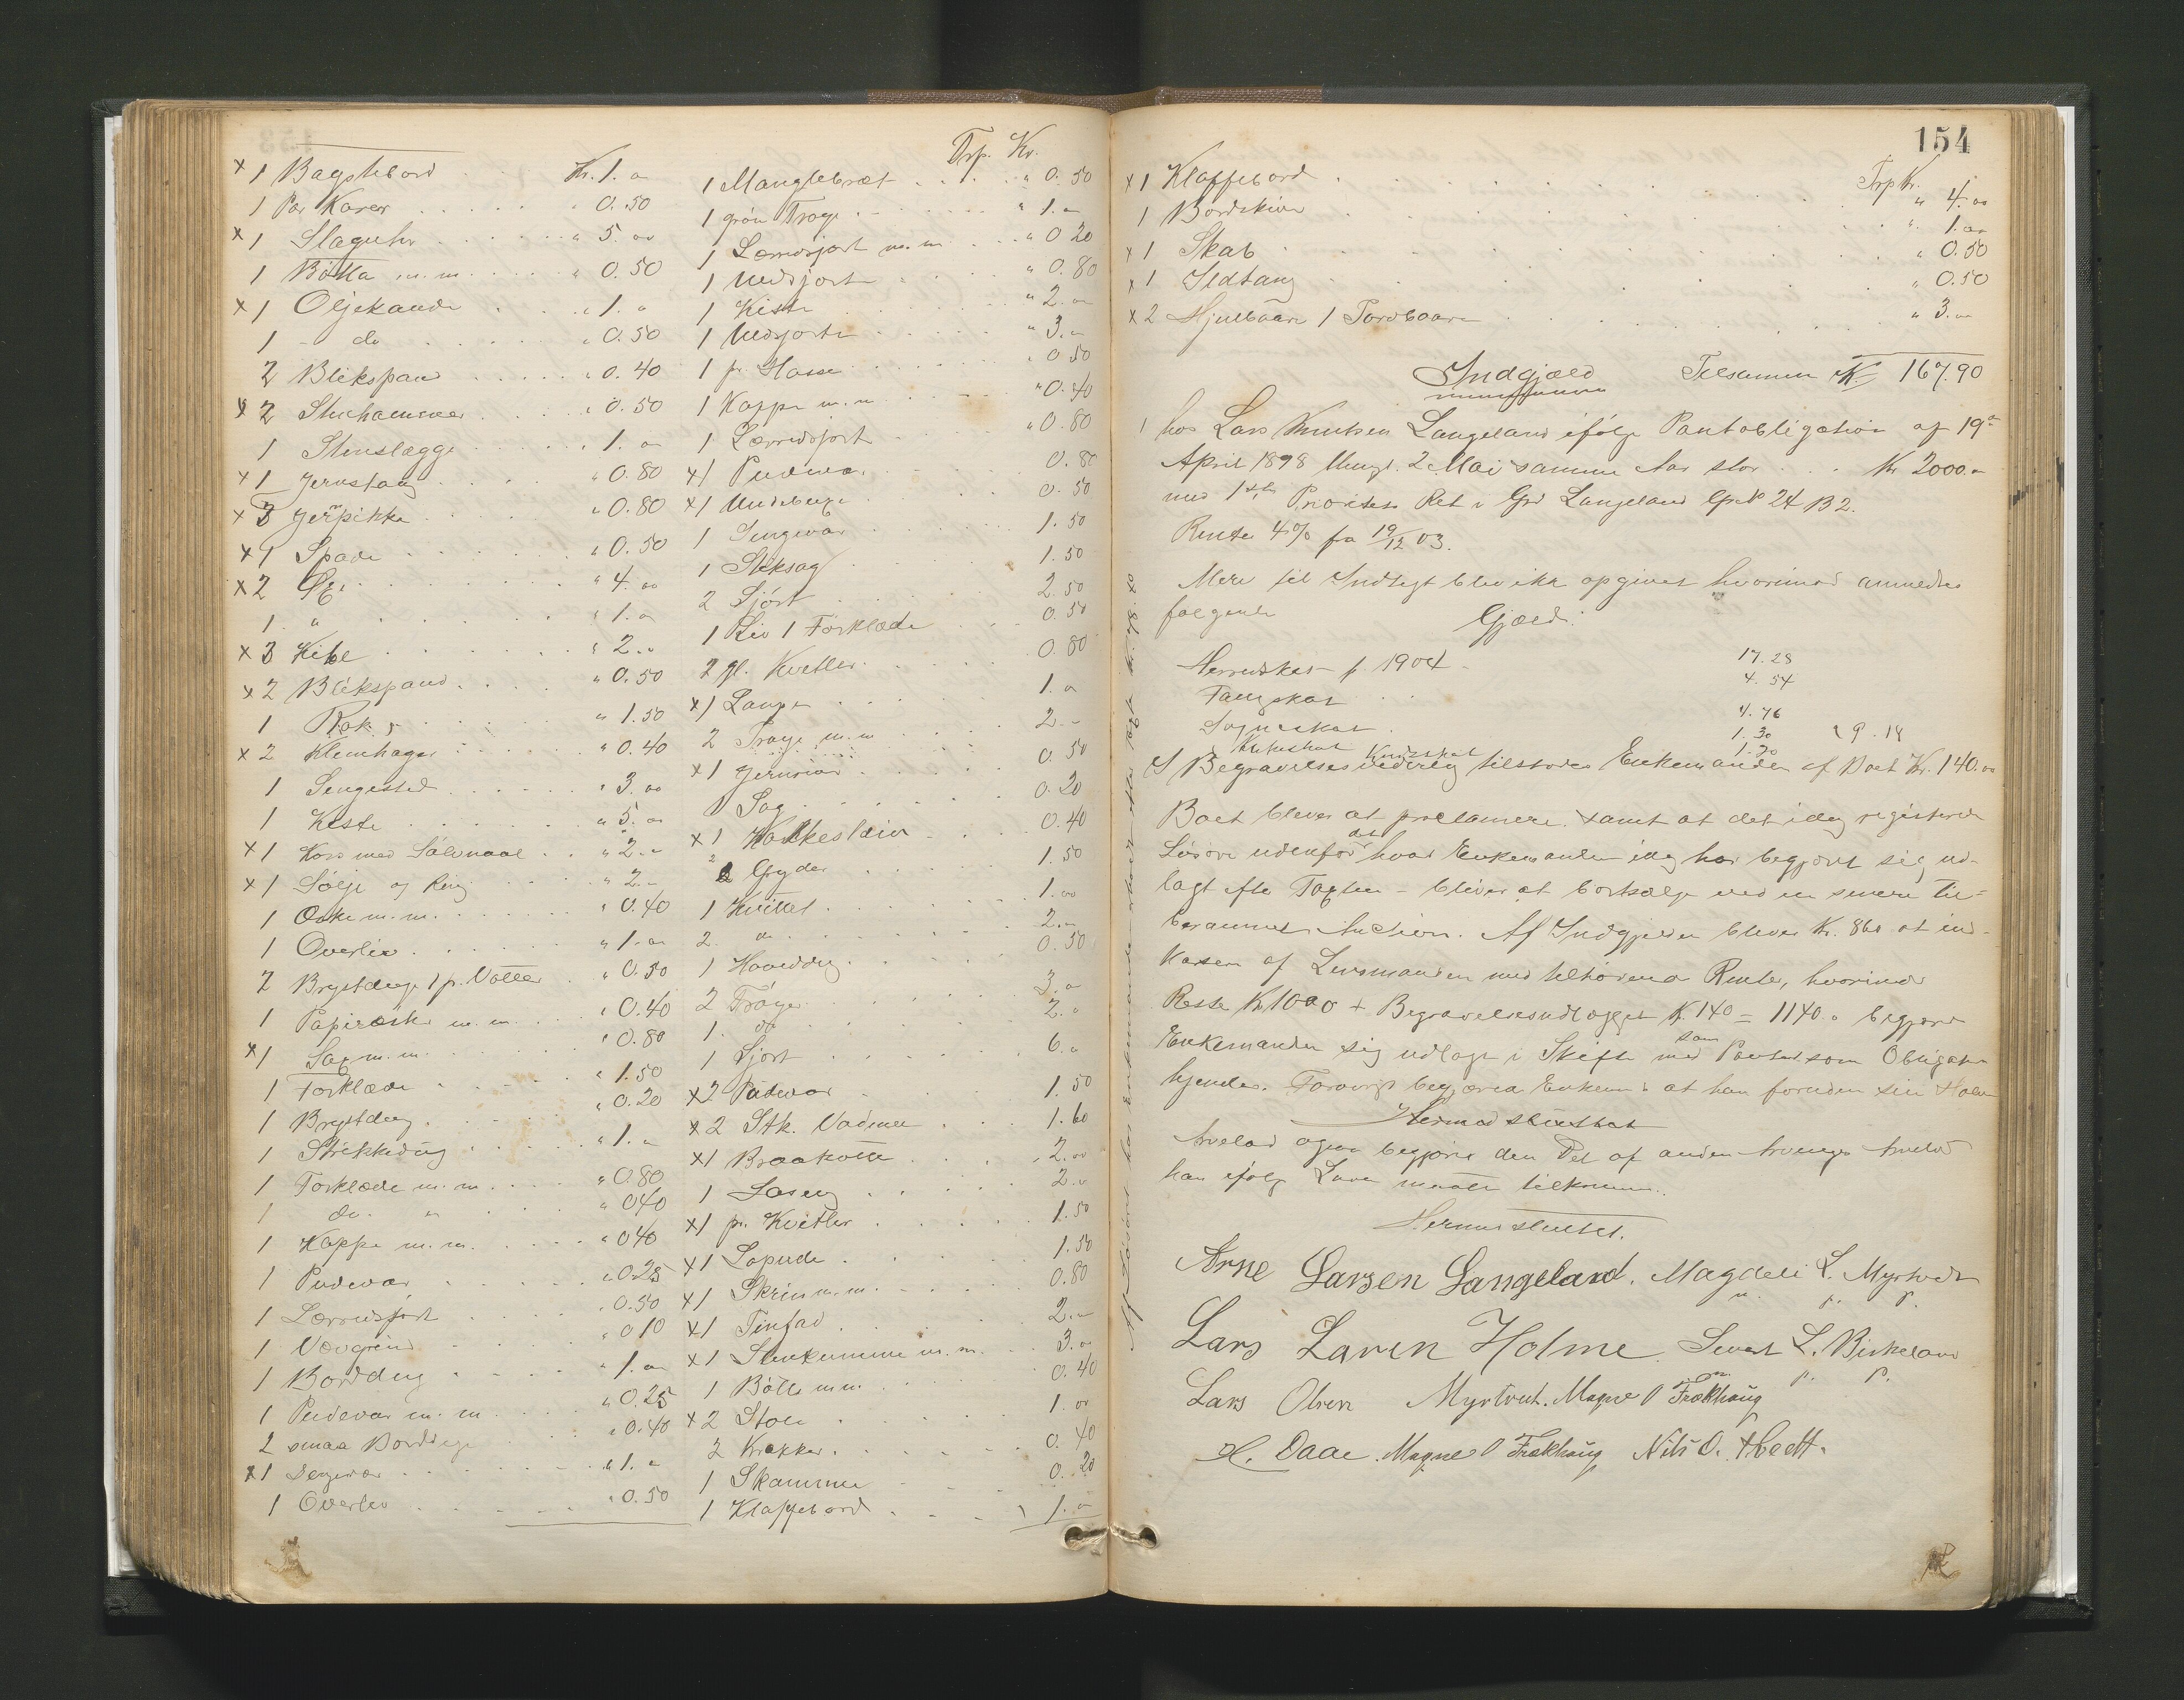 Trp. Kr.
x 1 Bagstebord Kr. 1. "
1 Par Karer " 0.50
x 1 Slaguhr " 5. oo
1 Bötta m.m. " 0.50
x 1 Oljekande " 1. "
1 - do " 0.50
2 Blikspand " 0.40
x 2 Stenhammer " 0.50
1 Stenslægge " 1. "
x 1 Jernstang " 0.80
x 3 Jernpikke " 0.80
x 1 Spade " 0.50
x 2 Øx " 4. oo
1 " " 1. "
x 3 Kibe " 2. "
x 2 Blikspand " 0.50
1 Rok " 1.50
x 2 Klemhager " 0.40
1 Sengested " 3. oo
1 Kiste " 5. oo
x 1 Kors med Sölvnaal " 2. "
x 1 Sölje og Ring " 2. "
1 Æske m.m. " 0.40
1 Overliv " 1. "
2 Brystduge 1 p. Votter " 0.50
1 Papiræske m.m. " 0.40
x 1 Sax m.m. " 0.80
1 Forklæde " 1.50
1 Brystdug " 0.20
1 Strikkedug " 1. "
1 Forklæde m.m. " 0.80
1 do. " " 0 40
1 Kappe m.m. " 0 40
1 Pudevar " 0.25
1 Lærredsjort " 0.50
1 Vævgrind " 0 10
1 Borddug " 1. "
1 Pudevar m.m. " 0.25
2 smaa Bordduge " 0.40
x 1 Sengevar " 1. "
1 Overliv " 0.50
1 Manglebræt " 0.50
1 grön Troge " 1. "
1 Lærredsjort m.m. " 0 20
1 Uldsjorte " 0.80
1 Kiste " 2. "
1 Uldsjorte " 3. "
1 p. Hoser " 0 50
1 Kappe m.m. " 0.40
1 Lærredsjort " 0.80
x 1 Pudevar 0.80
x 1 Undebuxe 0.50
1 Sengevar 1.50
1 Stiksag 1.50
2 Sjört 2.50
1 Liv 1 Forklæde 0.50
2 gl. Kvitler 0.80
x 1 Lampe 1. "
2 Troge m.m. 2. "
x 1 Jernvinn 0.50
1 Sag 0.20
x 1 Hakkesleiv 0.40
2 Gryder 1.50
1 Kvittel 1. oo
2 do 2. "
1 Hoveddug 0.50
2 Tröyer 3. "
1 do 2. "
1 Sjört 6. "
x 2 Pudevar 1.50
x 2 Stk. Vadmel 1.60
x 1 Braakolle 2. oo
1 Laseng 2. "
x 1 pr. Kvitler 1.50
x 1 Lopude 1.50
x 1 Skrin m.m. 0.80
x 1 Tinfad 2. "
x 1 Stenkumme m.m. 3. oo
1 Bötte m.m. 0.40
x 2 Stole 1. oo
2 Krakker 0.40
1 Skammel 0.20
1 Klaffebord 1. "
154
Trp Kr.
x 1 Klaffebord " 4. oo
1 Bordskive " 1. oo
x 1 Skab " 0.50
x 1 Ildtang " 0.50
x 2 Hjulbaare 1 Torvbaare " 3. "
Indgjæld Tilsammen Kr. 167.90
1 hos Lars Knutsen Langeland ifölge Pantobligation af 19de
April 1898 thingl. 2 Mai samme Aar stor Kr 2000. "
med 1ste Prioritets Ret i Grd Langeland Gr.No 24 B 2.
Rente 4% fra 19/12 03.
Mere til Indtægt blev ikke opgivet hvorimod anmeldtes
følgende Gjæld:
Herredskat f. 1904 17.28
Fattigskat 4.54
Sogneskat 4.76
Kirkeskat 1.30 " 9.14
I Begravelsesvederlag tilstodes Enkemanden af Boet Kr. 140. oo
Boet bliver at proclamere. samt at det idag registrerede
Lösöre udenfor det hvad Enkemanden idag har begjært sig ud-
lagt efter Taxten - bliver at bortsælge ved en senere til-
berammet Auction. Af Indgjælden bliver Kr. 860 at ind-
kassere af Lensmanden med tilhörende Rente, hvorimod
Resten Kr 1000 + Begravelsesudlægget Kr. 140 = 1140. " begjærer
Enkemanden sig udlagt i Skiftet med Pant som Obligation
hjemler. Forövrigt begjærer Enkem. at han foruden sin Halve
Hermed sluttet
Arvelod ogsaa begjære den Del af anden Arvings Arvelod
han ifölge Loven maatte tilkomme.
Hermed sluttet.
Arne Larsen Langeland. Magdeli L. Myrtvedt
m. p. P.
Lars Larsen Holme. Sivert L. Birkeland
m. p. P.
Lars Olsen Myrtveit. Magne O Trækhaug
H. Daae. Magne O Frækhaug Nils O. Hectt.